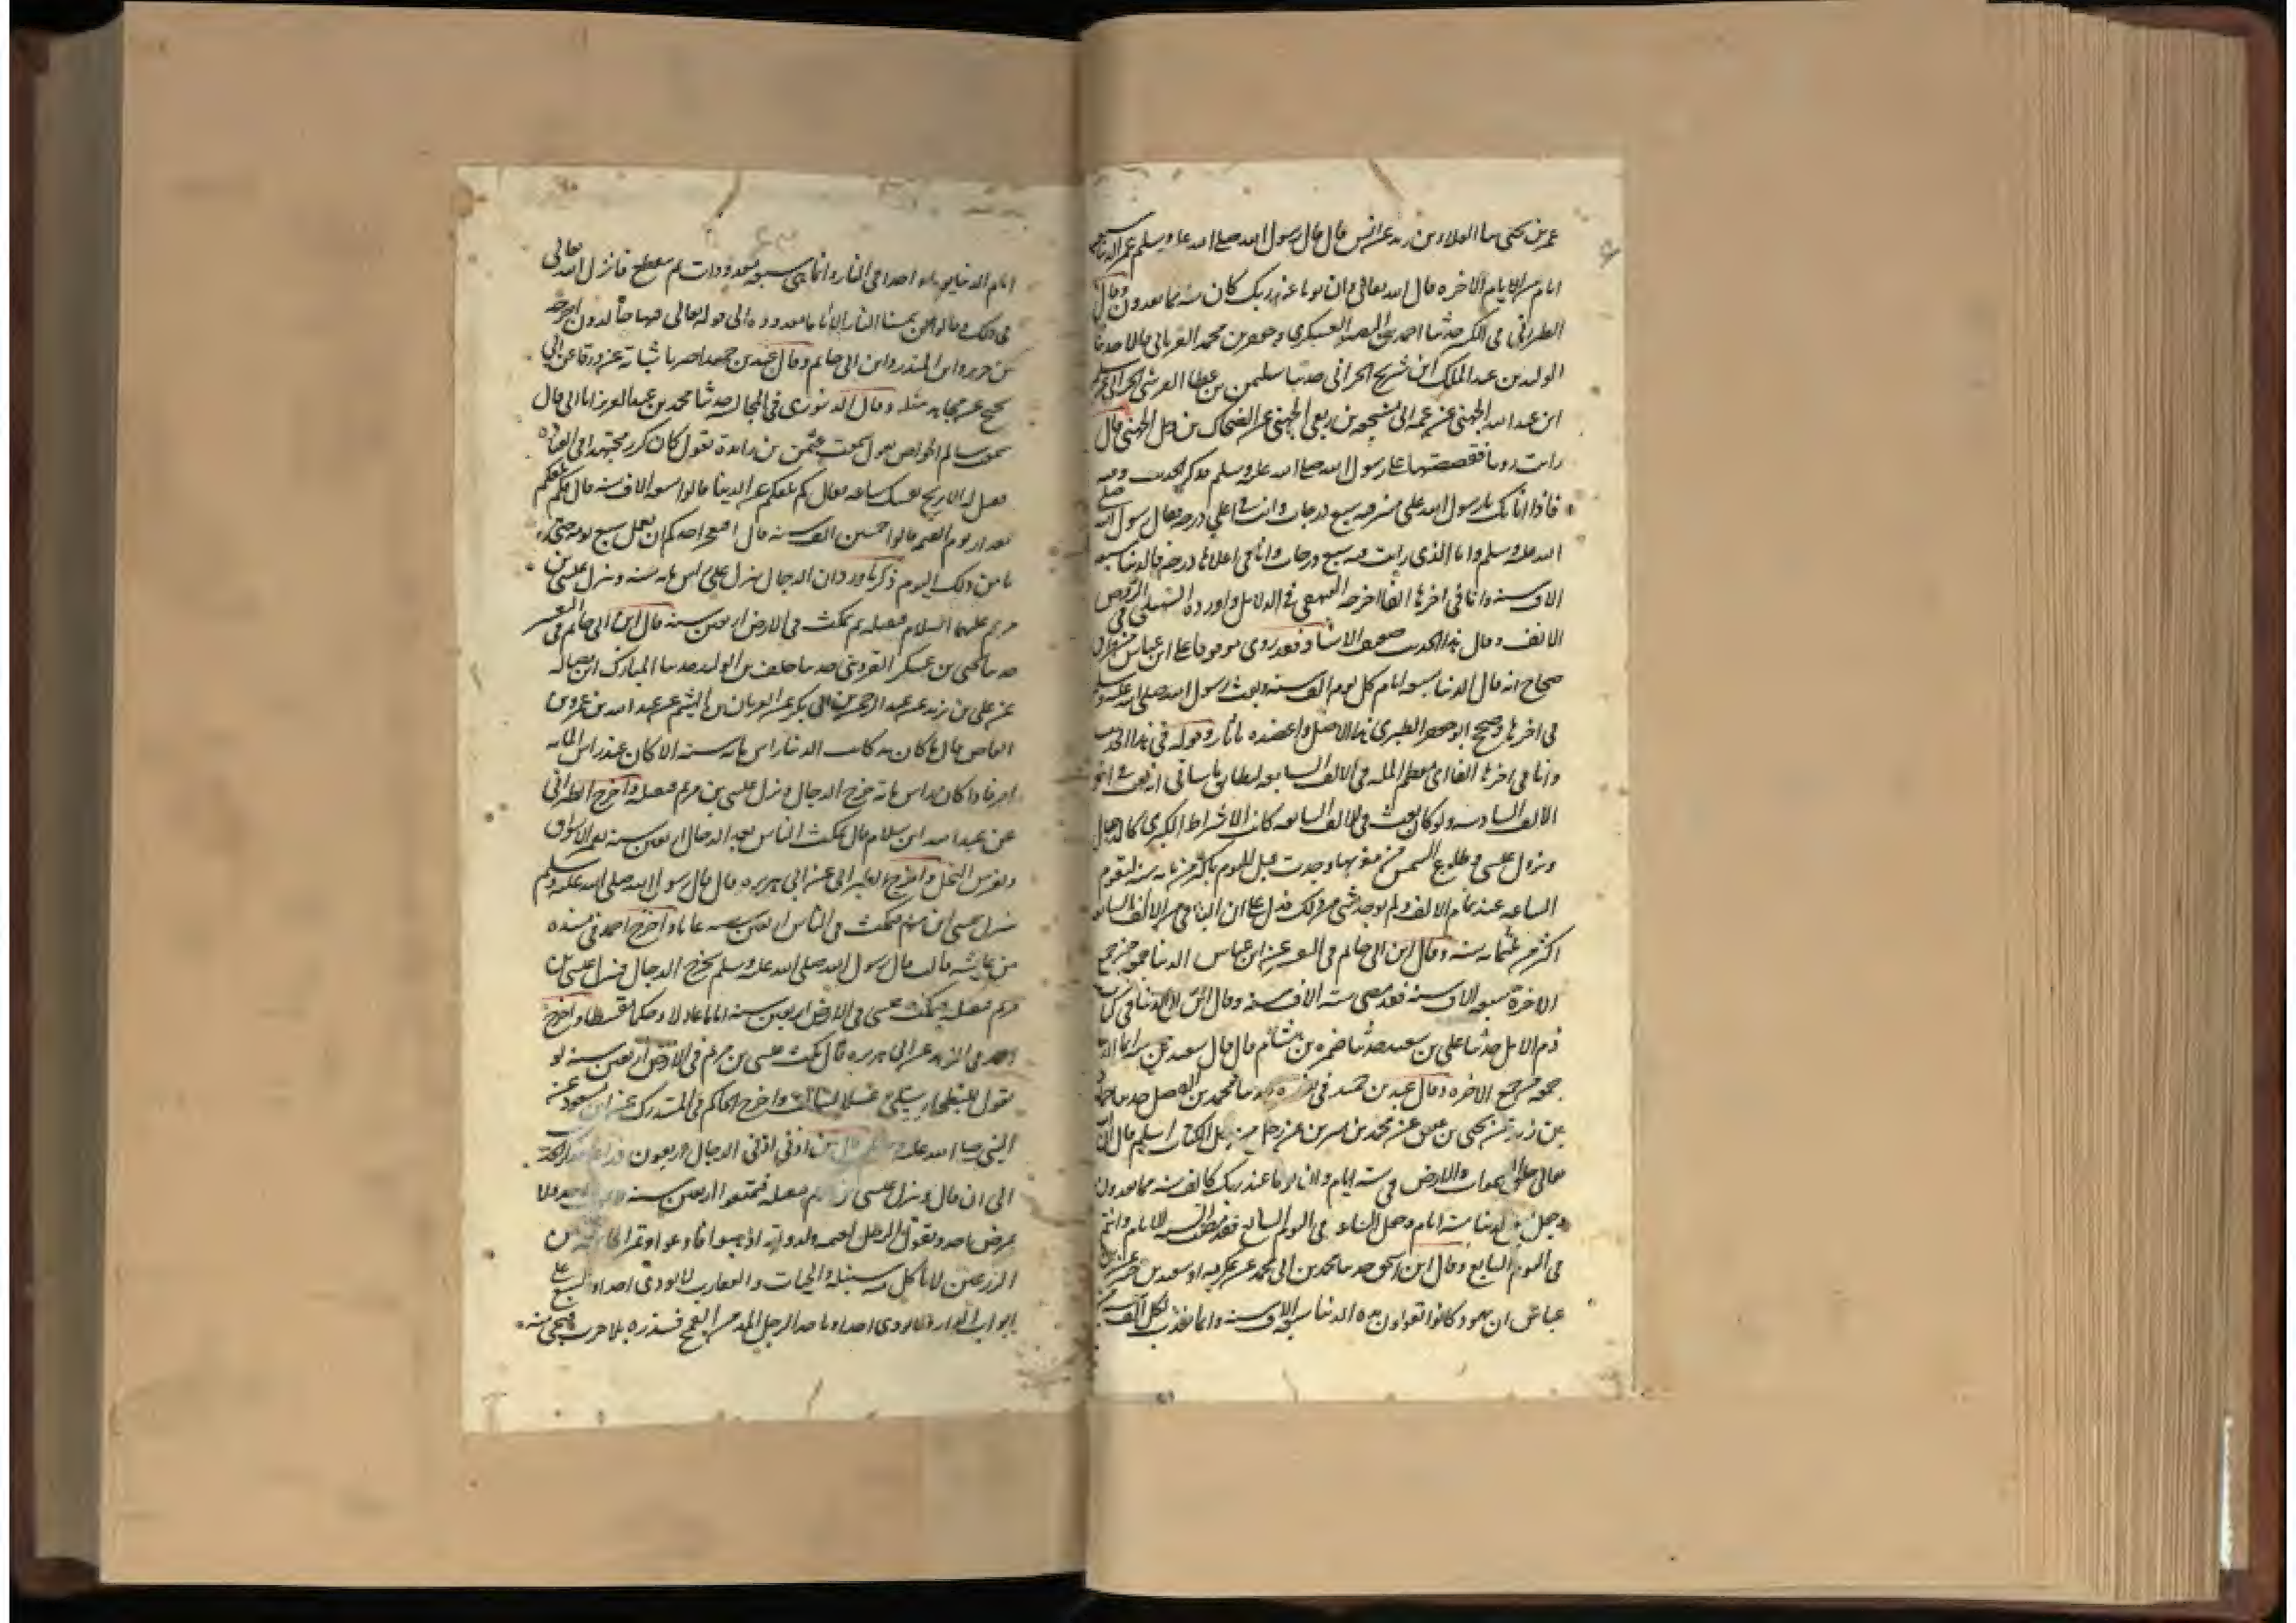 عمر بن يحيى ثنا العلاء بن زيد عن انس قال قال رسول الله صلى الله عليه وسلم عمر الدنيا سبعة
ايام من ايام الاخره قال الله تعالى وان يوما عند ربك كالف سنه مما تعدون وقال
الطبرانى فى الكبير حدثنا احمد بن النضر العسكرى وجعفر بن محمد الفريابى قالا حدثنا
الوليد بن عبد الملك ابن سريح الحرانى حدثنا سليمن بن عطا القرشى الحرانى عن مسلم
ابن عبد الله الجهنى عن عمه ابى مشجعه بن ربعى الجهنى عن الضحاك بن زمل الجهنى قال
رايت رويا فقصصتها على رسول الله صلى الله عليه وسلم فذكر الحديث وفيه
فاذا انا بك يا رسول الله على منبر فيه سبع درجات وانت فى اعلى درجه فقال رسول الله صلى
الله عليه وسلم واما الذى رايت فيه سبع درجات وانا فى اعلاها درجه فالدنيا سبعه
الاف سنه وانا فى اخرها الفا اخرجه البيهقى فى الدلايل واورده السهيلى فى الروض
الانف وقال هذا الحديث ضعيف الاسناد فقد روى موقوفا على ابن عباس من طرق
صحاح انه قال الدنيا سبعه ايام كل يوم الف سنه وبعث رسول الله صلى الله عليه وسلم
فى اخرها وصحح ابو جعفر الطبرى هذا الاصل واعضده باثار وقوله فى هذا الحديث
وانا فى اخرها الفا اى معظم المله فى الالف السابعه ليطابق ما سياتى انه بعث فى اخر
الالف السادسه ولو كان بعث فى الالف السابعه كانت الاشراط الكبرى كالدجال
ونزول عيسى وطلوع الشمس من مغربها وجدت قبل اليوم باكثر من مايه سنه لتقوم
الساعه عند تمام الالف ولم يوجد شى من ذلك فدل على ان الباقى من الالف السابعه
اكثر من ثلثمايه سنه وقال ابن ابى حاتم فى التفسير عن ابن عباس الدنيا جمعه من جمع
الاخرة سبعه الاف سنه فقد مضى سته الاف سنه وقال ابن ابى الدنيا فى كتاب
ذم الامل حدثنا على بن سعيد حدثنا ضمره بن هشام قال قال سعيد بن جبير انما الدنيا
جمعه من جمع الاخره وقال عبد بن حميد فى تفسيره حدثنا محمد بن الفضل حدثنا حماد
بن زيد عن يحيى بن عتيق عن محمد بن سيرين عن رجل من اهل الكتاب اسلم قال ان الله
تعالى خلق السموات والارض فى سته ايام وان يوما عند ربك كالف سنه مما تعدون
وجعل اجل الدنيا سته ايام وجعل الساعه فى اليوم السابع فقد مضت السته الايام وانتم
فى اليوم السابع وقال ابن اسحق حدثنا محمد بن ابى محمد عن عكرمه او سعيد بن جبير عن ابن
عباس ان يهود كانوا تقولون مده الدنيا سبعه الاف سنه وانما نعذب لكل الف سنه من
ايام الدنيا يوما واحدا فى النار وانما هى سبعه معدودات ثم ينقطع فانزل الله تعالى
فى ذلك وقالوا لن تمسنا النار الا اياما معدوده الى قوله تعالى فيها خالدون اخرجه
ابن جرير وابن المنذر وابن ابى حاتم وقال عبد بن حميد اخبرنا شبابة عن ورقا عن ابن ابى
نجيح عن مجاهد مثله وقال الدينورى فى المجالسه حدثنا محمد بن عبد العزيز انا ابى قال
سمعت سالم الخواص يقول سمعت عثمن بن زايدة تقول كان كرز مجتهدا فى العبادة
فقيل له الا تريح نفسك ساعه فقال كم بلغكم عمر الدنيا قالوا سبعه الاف سنه قال فكم بلغكم
مقدار يوم القيمه قالوا خمسين الف سنه قال افيعجز احدكم ان يعمل سبع يومه حتى
يامن ذلك اليوم ذكر ما ورد ان الدجال ينزل على راس مايه سنه وينزل عيسى بن
مريم عليهما السلام فيقتله ثم يمكث فى الارض اربعين سنه قال ابن ابى حاتم فى التفسير
حدثنا يحيى بن عبدك القزوينى حدثنا خلف بن الوليد حدثنا المبارك ابن فضاله
عن على بن زيد عن عبد الرحمن بن ابى بكر عن العريان بن الهيثم عن عبد الله بن عمرو بن
العاص قال ما كان مذ كانت الدنيا راس مايه سنه الا كان عند راس المايه
امر فاذا كان راس مايه خرج الدجال ونزل عيسى بن مريم فيقتله واخرج الطبرانى
عن عبد الله ابن سلام قال يمكث الناس بعد الدجال اربعين سنه تعمر الاسواق
وتغرس النخل واخرج الطبرانى عن ابى هريره قال قال رسول الله صلى الله عليه وسلم
ينزل عيسى ابن مريم فيمكث فى الناس اربعين سنه عاما واخرج احمد فى مسنده
عن عايشه قالت قال رسول الله صلى الله عليه وسلم يخرج الدجال فينزل عيسى بن
مريم فيقتله ثم يمكث عيسى فى الارض اربعين سنه اماما عادلا وحكما مقسطا واخرج
احمد فى الزهد عن ابى هريره قال يمكث عيسى بن مريم فى الارض اربعين سنه لو
تقول للبطحا سيلى عسلا لسالت واخرج الحاكم فى المستدرك عن ابن مسعود عن
النبى صلى الله عليه وسلم قال بين اذنى الدجال اربعون ذراعا فذكر الحديث
الى ان قال وينزل عيسى بن مريم فيقتله فيتمتعوا اربعين سنه لا يموت احد ولا
يمرض احد ويقول الرجل لغنمه ولدوابه اذهبوا فارعوا وتمر الماشيه بين
الزرعين لا تاكل منه سنبله والحيات والعقارب لا توذى احدا والسبع على
ابواب الدور لا يوذى احدا وياخذ الرجل المد من القمح فيبذره بلا حرث فيجى منه